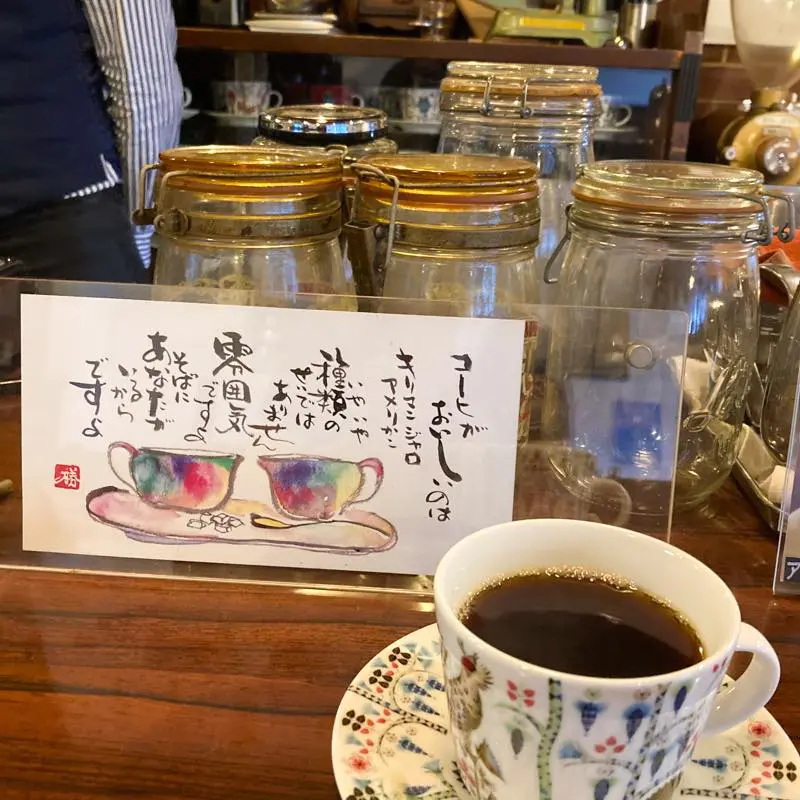 コーヒーが
おいしいのは
キリマンジャロ
アメリカン
いやいや
種類の
せいでは
ありません
雰囲気
ですよ
そばに
あなたが
いるから
ですよ
勝
ア